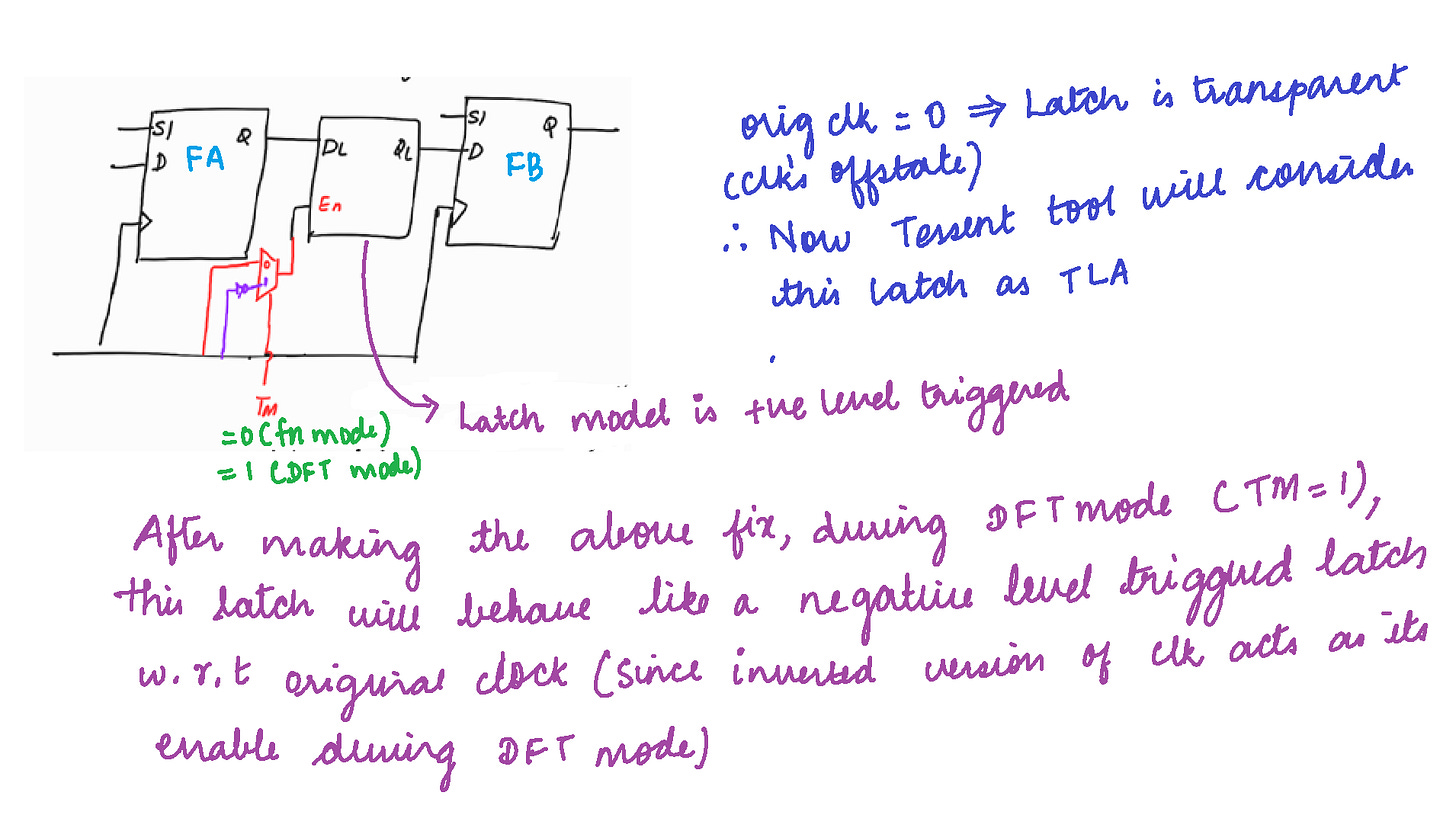 SI
D
Q
FA
DL
QL
En
SI
D
Q
FB
0
1
TM
=0 (fn mode)
=1 (DFT mode)
orig clk = 0 ⇒ Latch is transparent
(clk's offstate)
∴ Now Tessent tool will consider
this latch as TLA
Latch model is +ve level triggered
After making the above fix, during DFT mode (TM=1),
this latch will behave like a negative level triggered latch
w.r.t original clock (since inverted version of clk acts as its
enable during DFT mode)